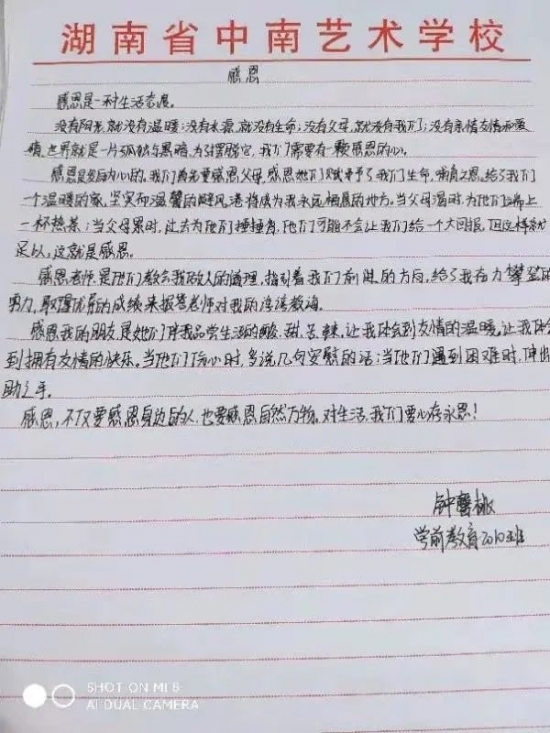 湖南省中南艺术学校
感恩
感恩是一种生活态度。
没有阳光,就没有温暖;没有水源,就没有生命;没有父母,就没有我们;没有亲情友情和爱
情,世界就是一片孤独与黑暗,为摆脱它,我们需要有一颗感恩的心。
感恩是发自内心的。我们首先要感恩父母,感恩她们赋予了我们生命,哺育之恩。给了我们一
个温暖的家,坚实而温馨的避风港将成为我永远栖息的地方。当父母渴时,为他们端上
一杯热茶;当父母累时,过去为他们捶捶肩,他们可能不会让我们给一个大回报,但这样就
足以,这就是感恩。
感恩老师,是他们教会我做人的道理,指引着我们前进的方向,给了我奋力攀登的
勇力,取得优异的成绩来报答老师对我的谆谆教诲。
感恩我的朋友,是她们伴我品尝生活的酸、甜、苦、辣,让我体会到友情的温暖,让我体会
到拥有友情的快乐。当他们伤心时,多说几句安慰的话;当他们遇到困难时,伸出
助之手。
感恩,不仅要感恩身边的人,也要感恩自然万物。对生活,我们要心存永恩!
钟馨椒
学前教育2010班
SHOT ON MI 6
AI DUAL CAMERA